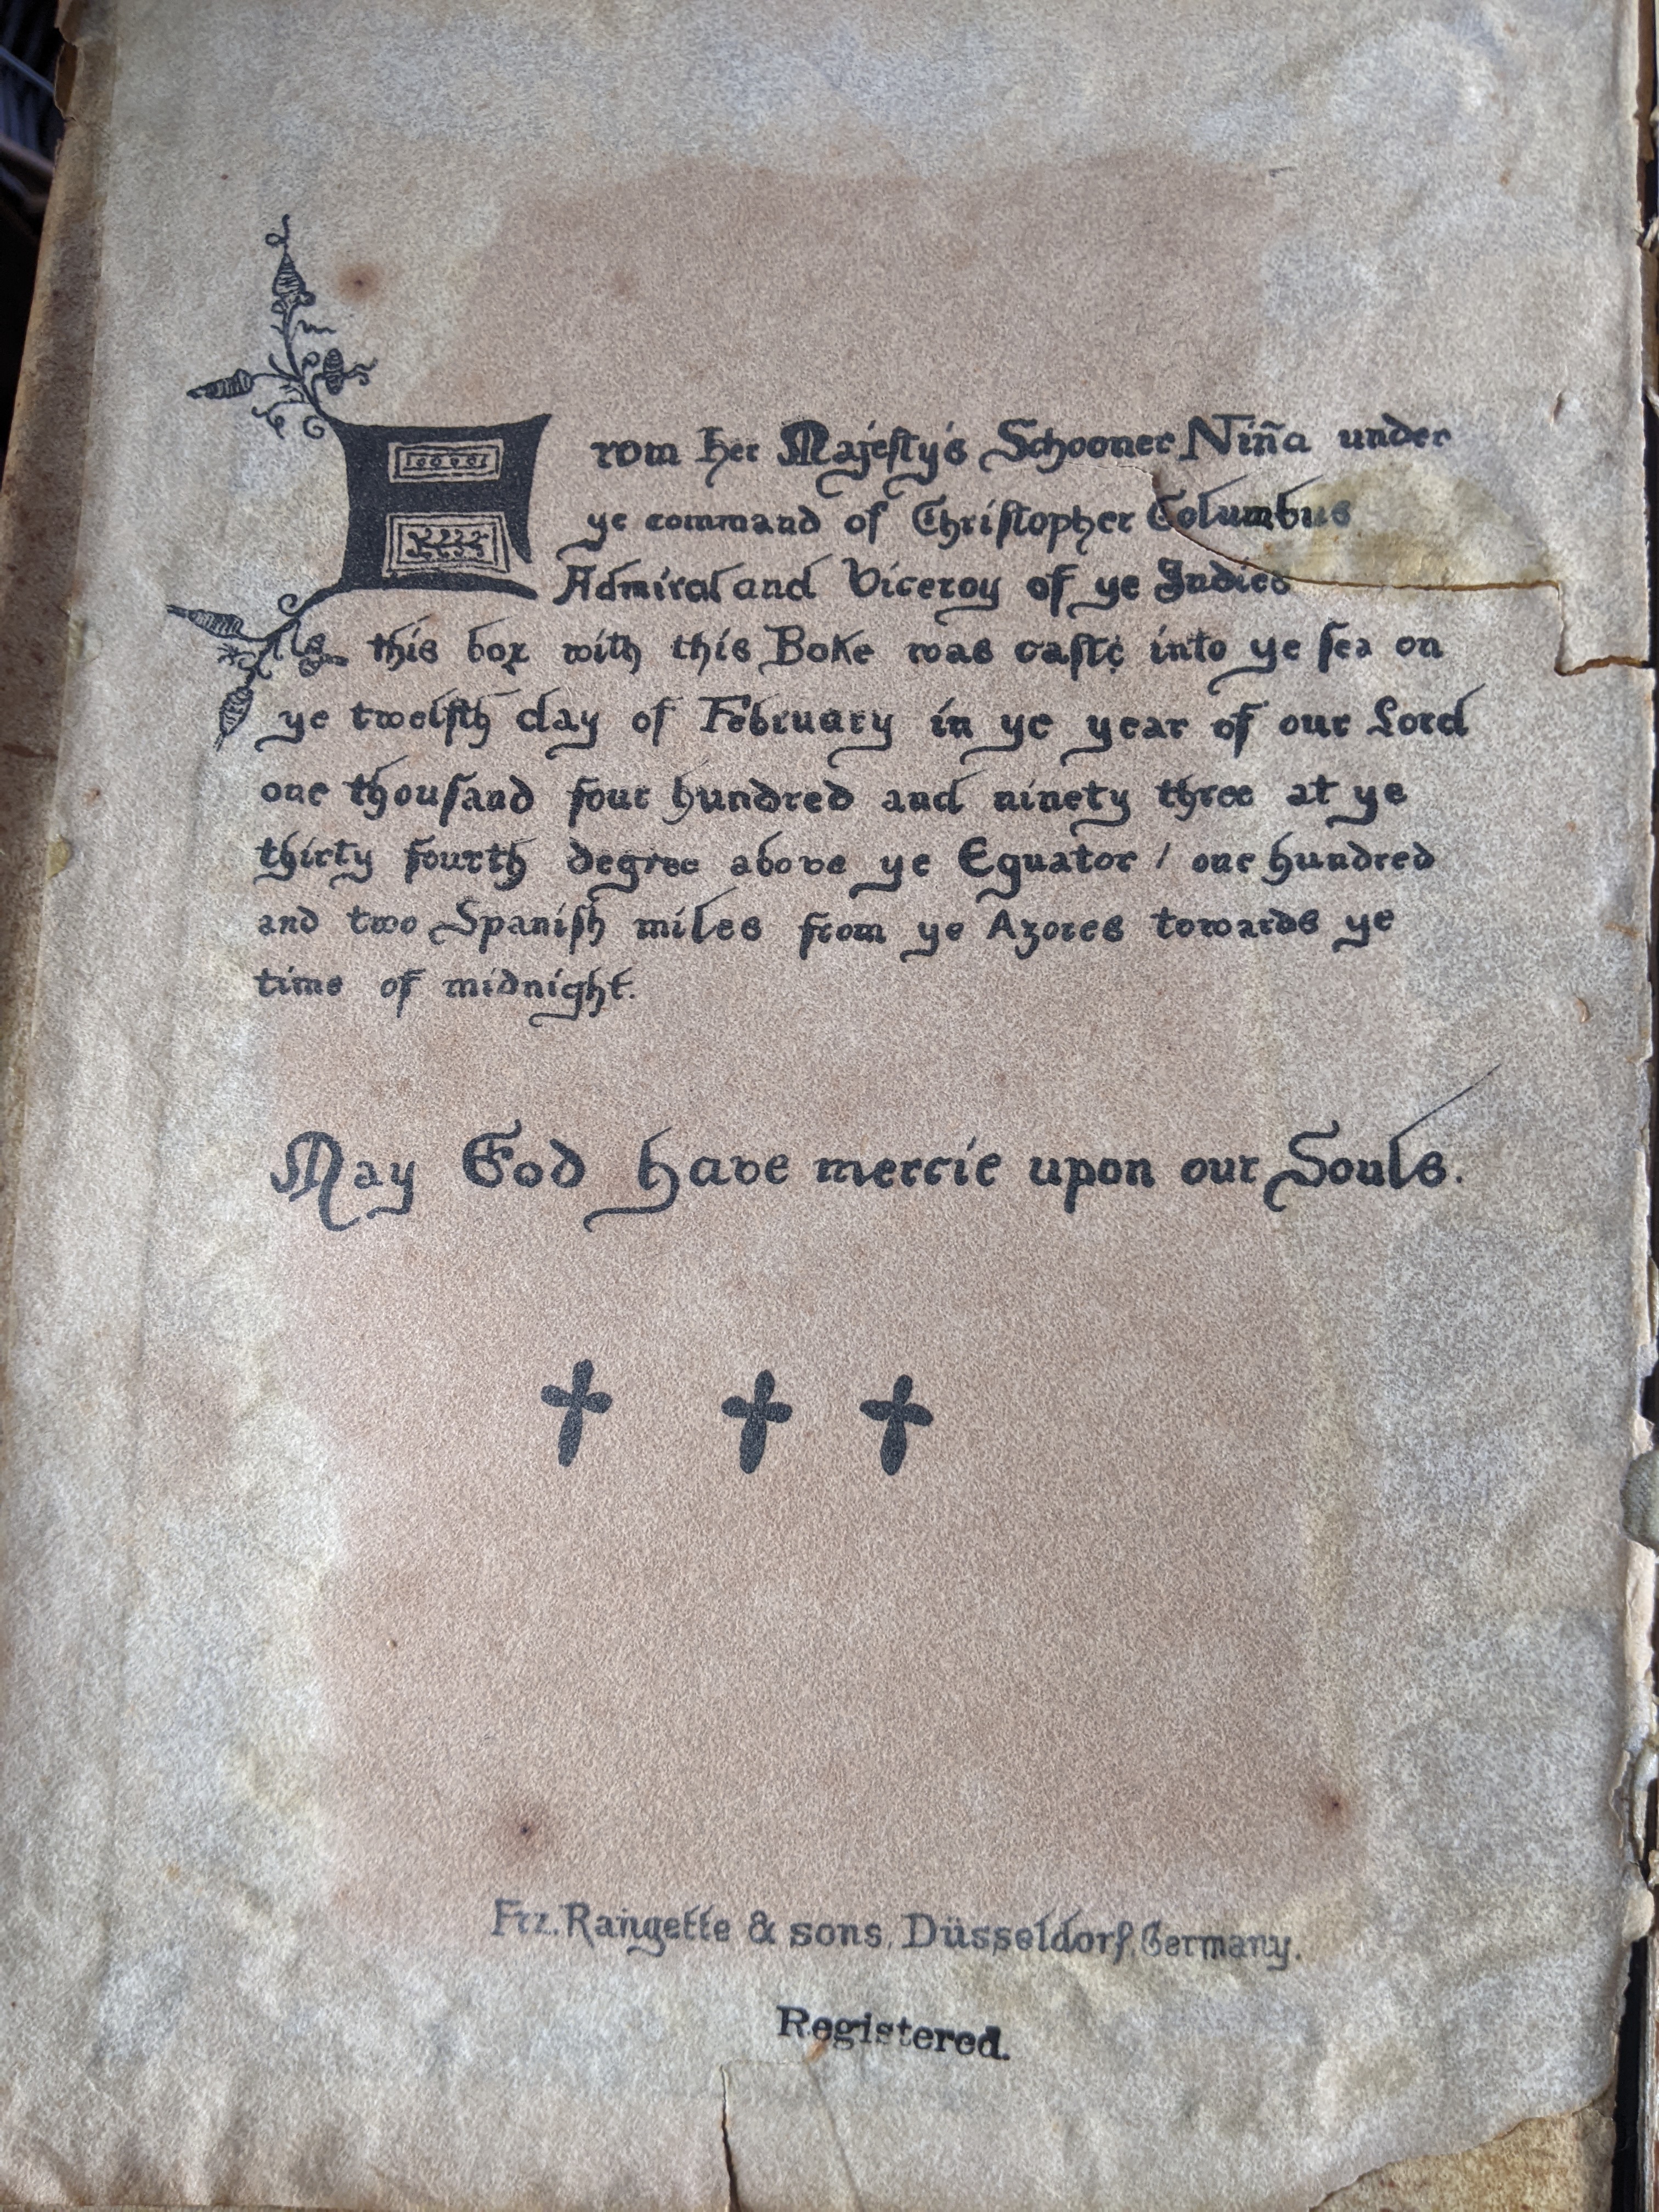 From Her Majesty's Schooner Niña under
ye command of Christopher Columbus
Admiral and Viceroy of ye Indies
this box with this Boke was caste into ye sea on
ye twelfth day of February in ye year of our Lord
one thousand four hundred and ninety three at ye
thirty fourth degree above ye Equator / one hundred
and two Spanish miles from ye Azores towards ye
time of midnight.
May God have mercie upon our Souls.
Frz. Rangette & sons, Düsseldorf, Germany.
Registered.